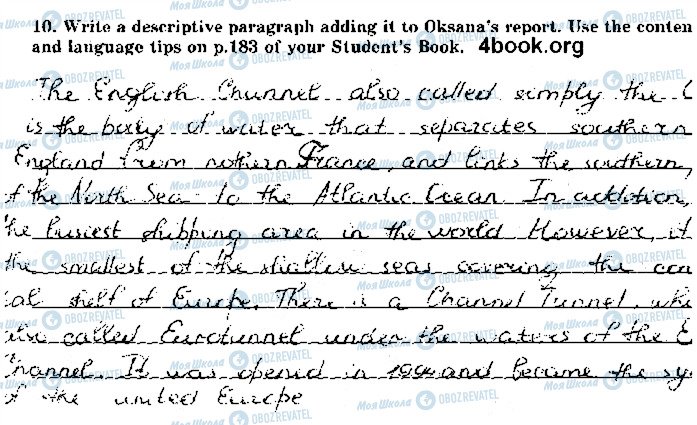 10. Write a descriptive paragraph adding it to Oksana's report. Use the conten
and language tips on p.183 of your Student's Book. 4book.org
The English Channel also called simply the C
is the body of water that separates southern
England from nothern France, and links the southern,
of the North Sea to the Atlantic Ocean In addition,
the busiest shipping area in the world However, it
the smallest of the shallow seas covering the con
tal shelf of Europe. There is a Channel Tunnel, whi
also called Eurotunnel under the waters of the E
Channel. It was opened in 1994 and became the sy
of the united Europe
Моя Школа OBOZREVATEL